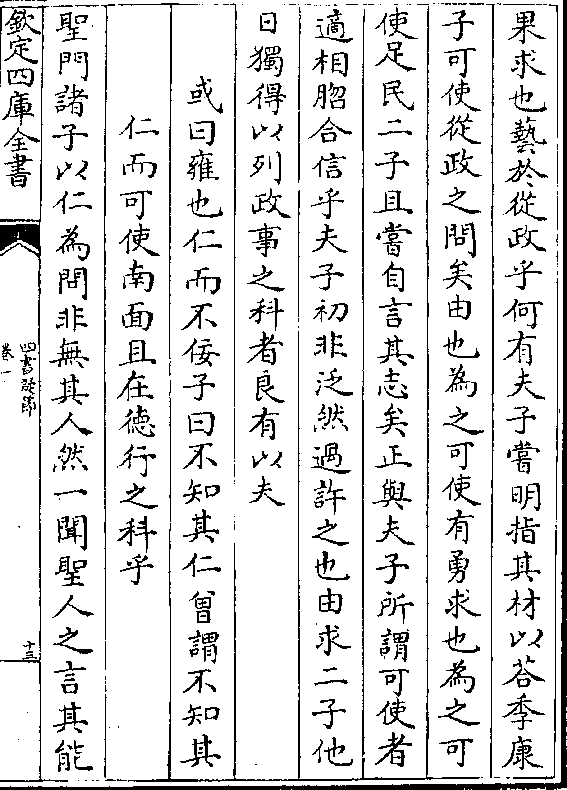 果求也藝於從政乎何有夫子嘗明指其材以荅季康
子可使從政之問矣由也為之可使有勇求也為之可
使足民二子且嘗自言其志矣正與夫子所謂可使者
適相脗合信乎夫子初非泛然過許之也由求二子他
日獨得以列政事之科者良有以夫
或曰雍也仁而不佞子曰不知其仁曾謂不知其
仁而可使南面且在德行之科乎
聖門諸子以仁為問非無其人然一聞聖人之言其能
欽定四庫全書
四書疑節
卷一
十三